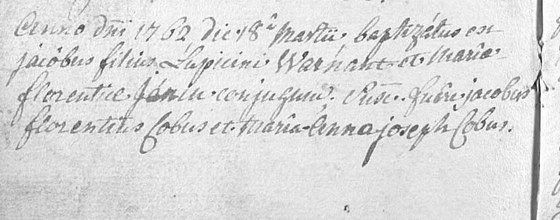 Anno dni 1762 die 18a martii baptizatus est
jacobus filius Lupicini Warnant et Maria
florentiæ Janin conjugum. Susc. fuêre jacobus
florentius Cobus et maria Anna joseph Cobus.